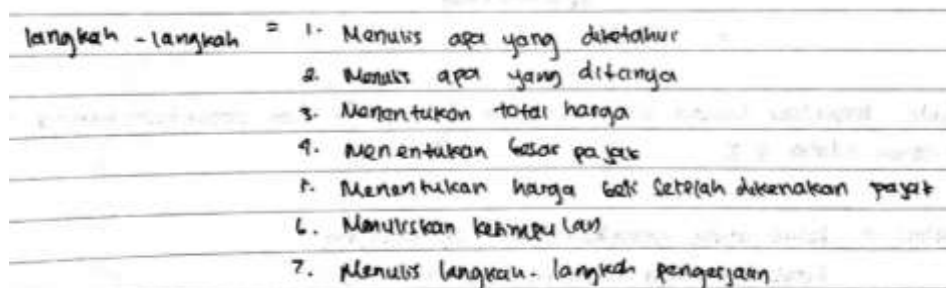 langkah - langkah = 1. Menulis apa yang diketahui
2. Menulis apa yang ditanya
3. Menentukan total harga
4. Menentukan besar pajak
5. Menentukan harga beli setelah dikenakan pajak
6. Menuliskan kesimpulan
7. Menulis langkah - langkah pengerjaan